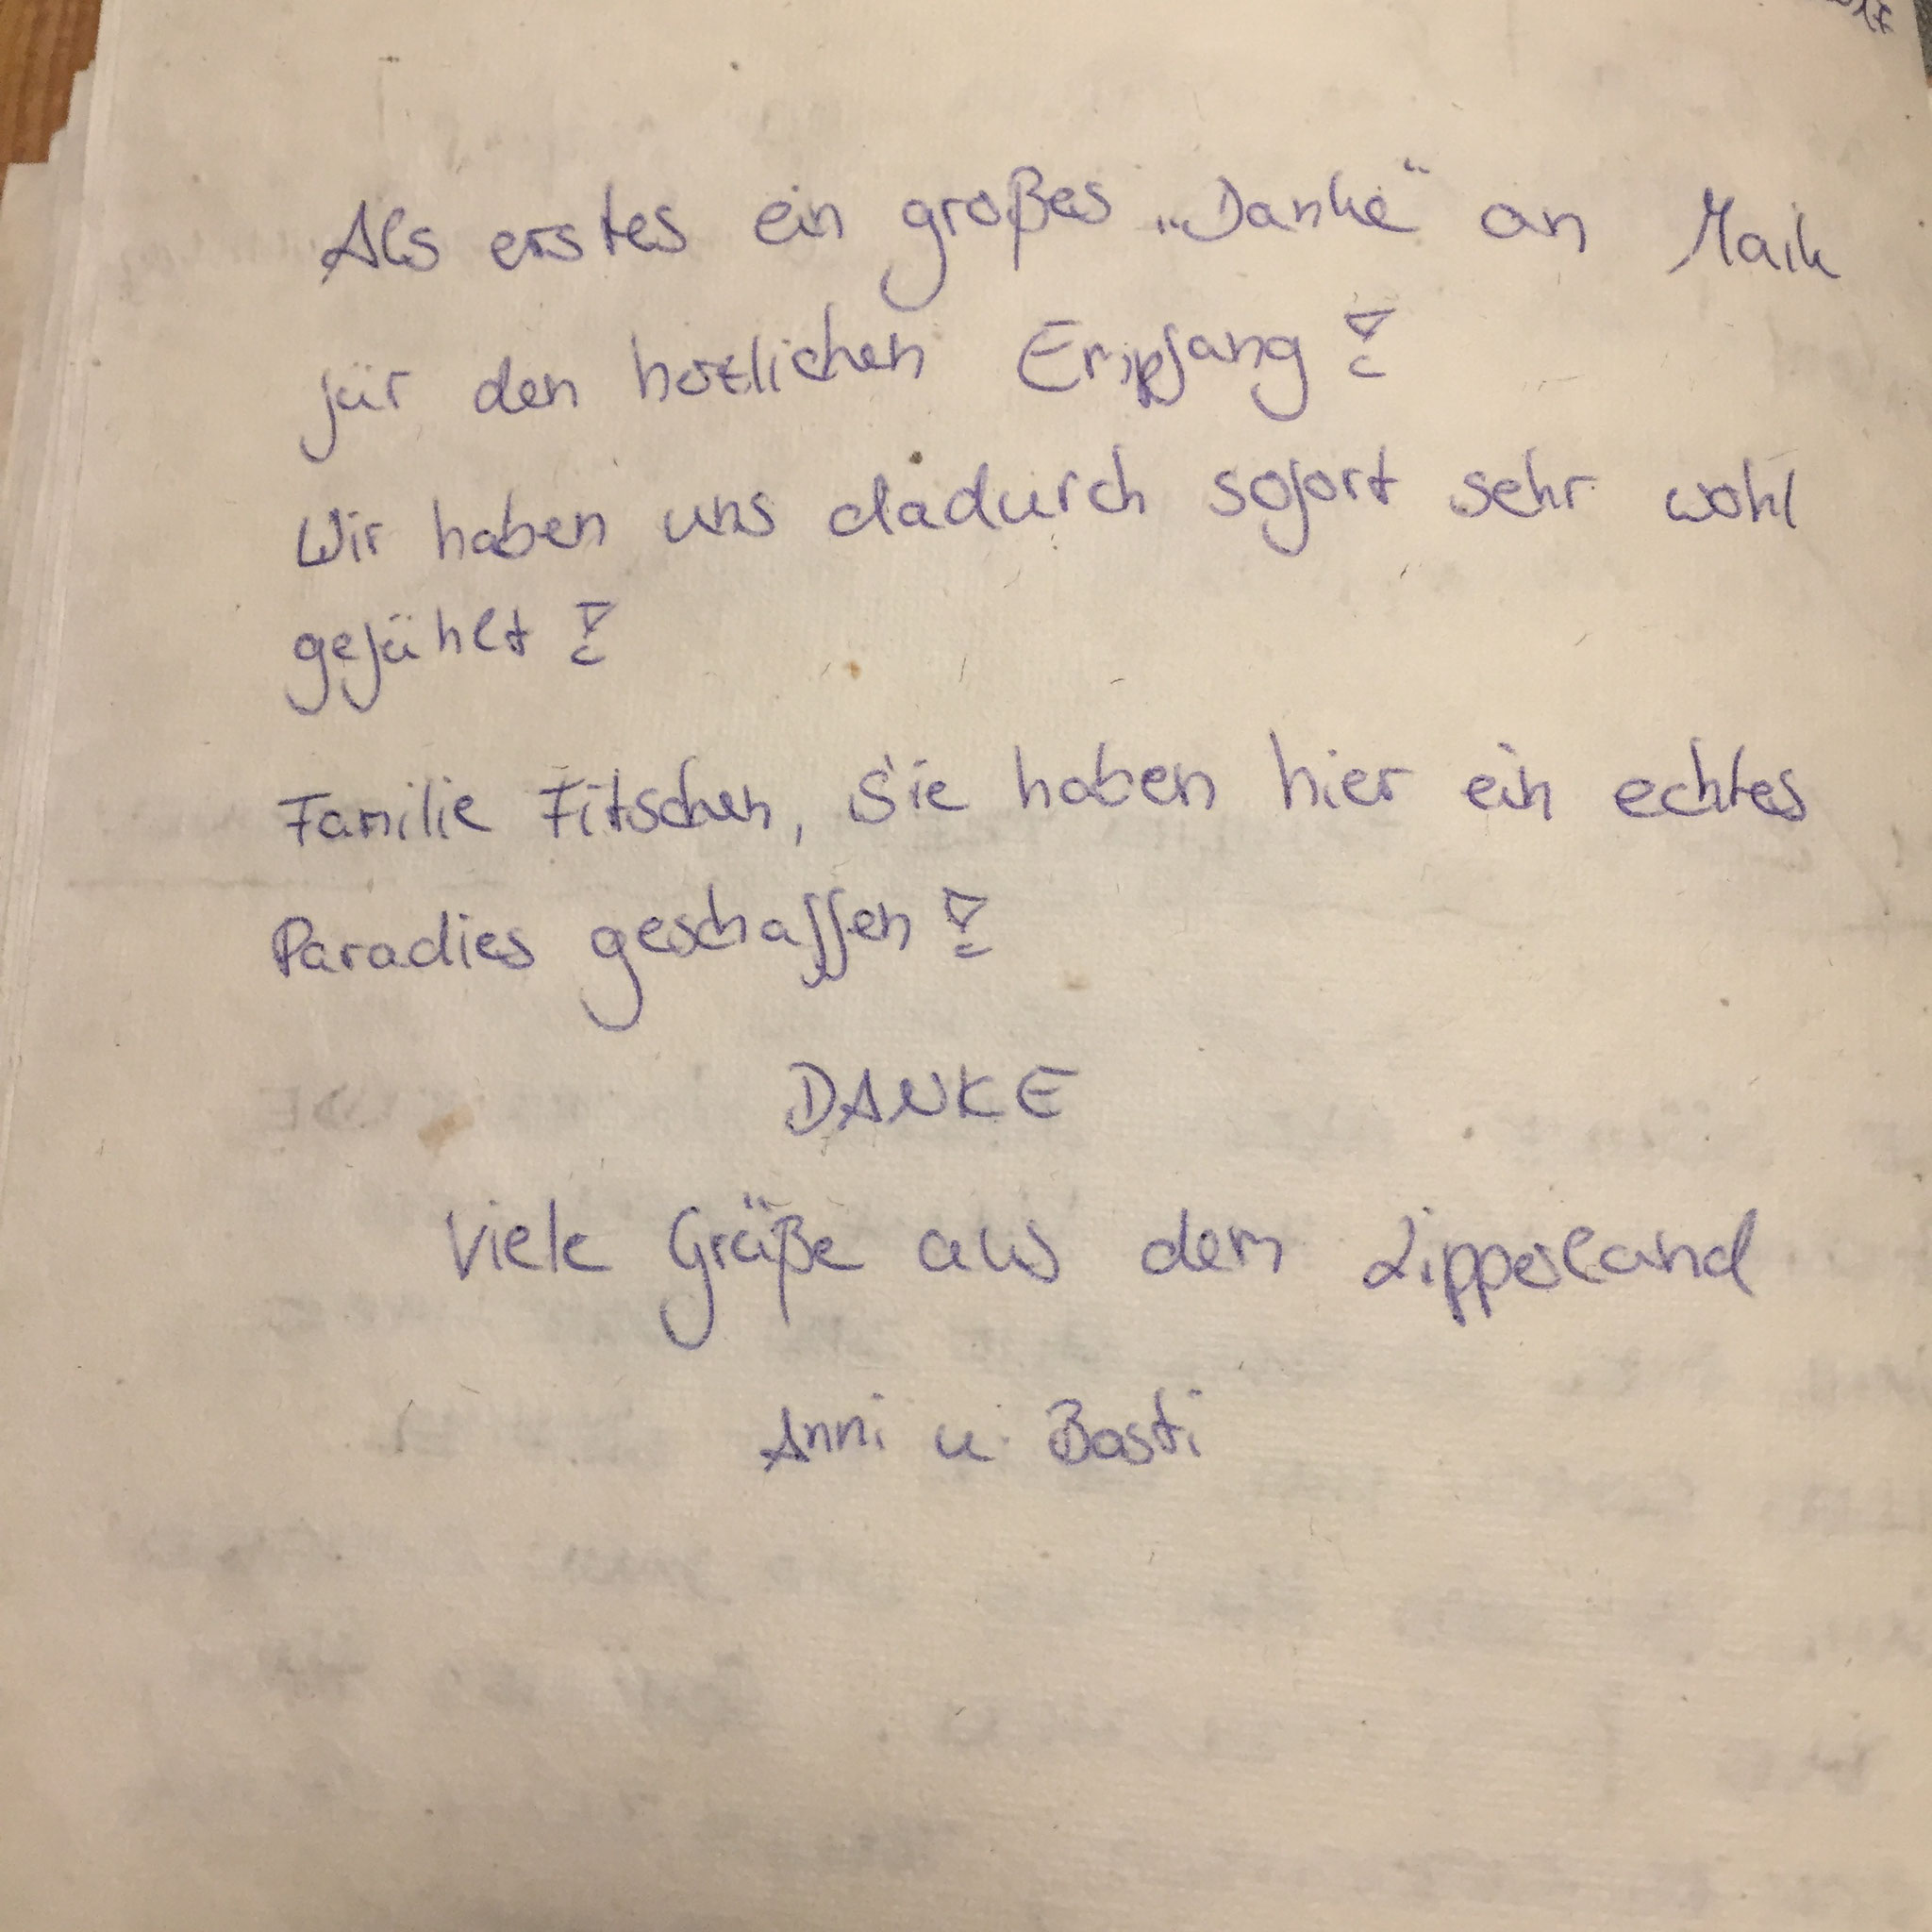 Als erstes ein großes „Danke“ an Maik
für den herzlichen Empfang!
Wir haben uns dadurch sofort sehr wohl
gefühlt!
Familie Fitschen, Sie haben hier ein echtes
Paradies geschaffen!
DANKE
Viele Grüße aus dem Lipperland
Anni u. Basti